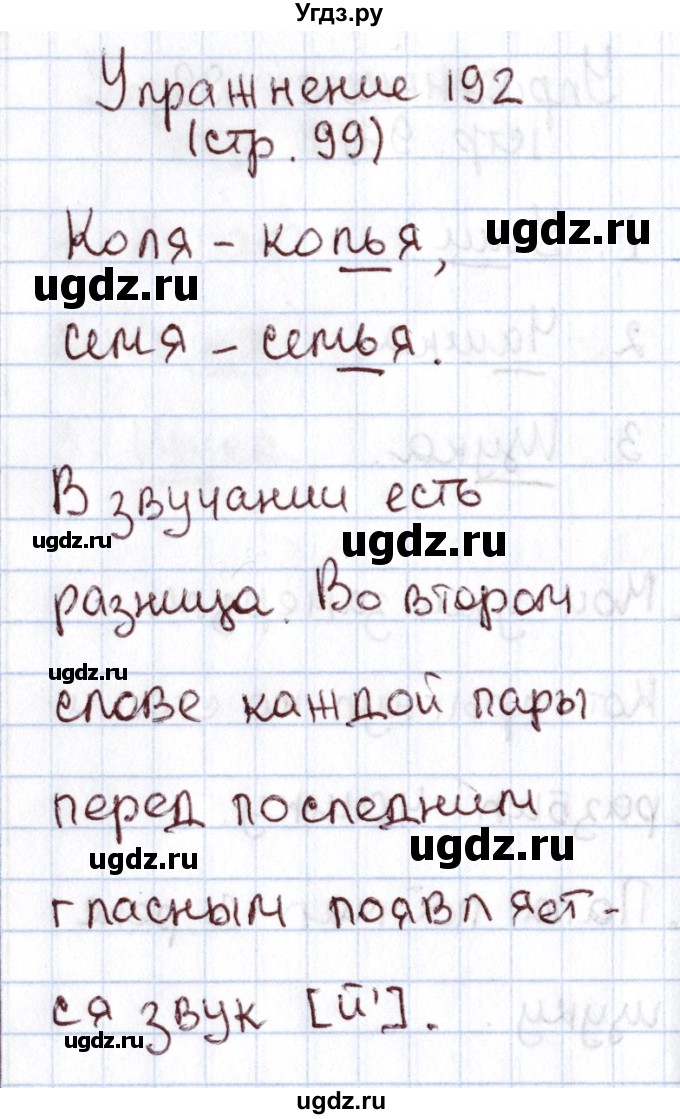 Угдз.ру
Упражнение 192
(стр. 99)
Коля – колья, ugdz.ru
ugdz.ru
семя – семья.
В звучании есть
ugdz.ru ugdz.ru
разница. Во втором
ugdz.ru
слове каждой пары
перед последним
ugdz.ru ugdz.ru
гласным появляет-
ся звук [й'].
ugdz.ru
ugdz.ru